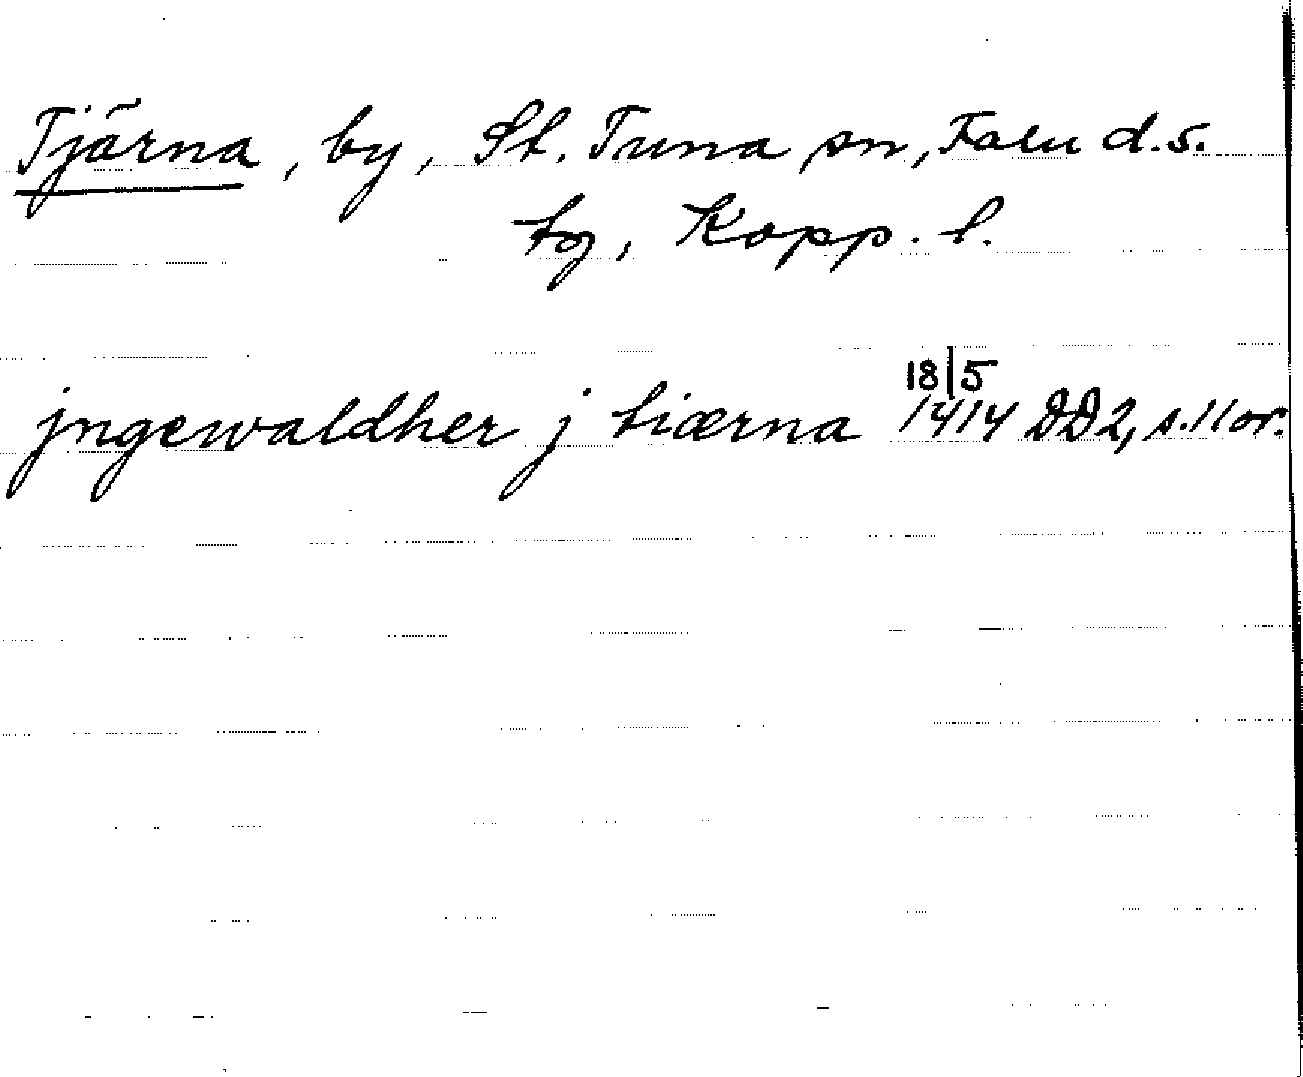 Tjärna, by, St. Tuna sn, Falu d.s.
tg, Kopp. l.
18/5
jngewaldher j tiærna 1414 DD2, s.11 or.